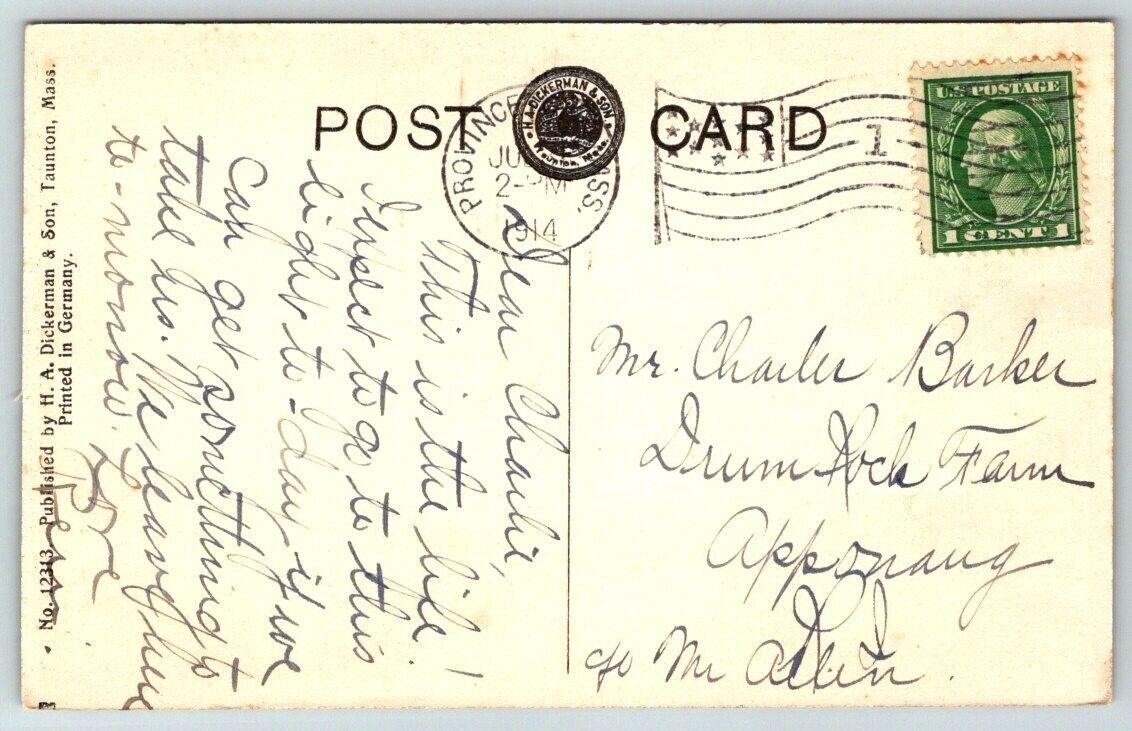 POST CARD
H. A. DICKERMAN & SON
Taunton, Mass.
PROVINCE
MASS.
2-PM
1914
1
U.S. POSTAGE
1 CENT 1
Dear Charlie,
This is the life!
I expect to go to this
light to-day, if we
can get something to
take us. We leave here
to-morrow.
Love
Mr. Charles Barker
Drum Rock Farm
Apponaug
R.I.
c/o Mr
No. 12313 Published by H. A. Dickerman & Son, Taunton, Mass.
Printed in Germany.